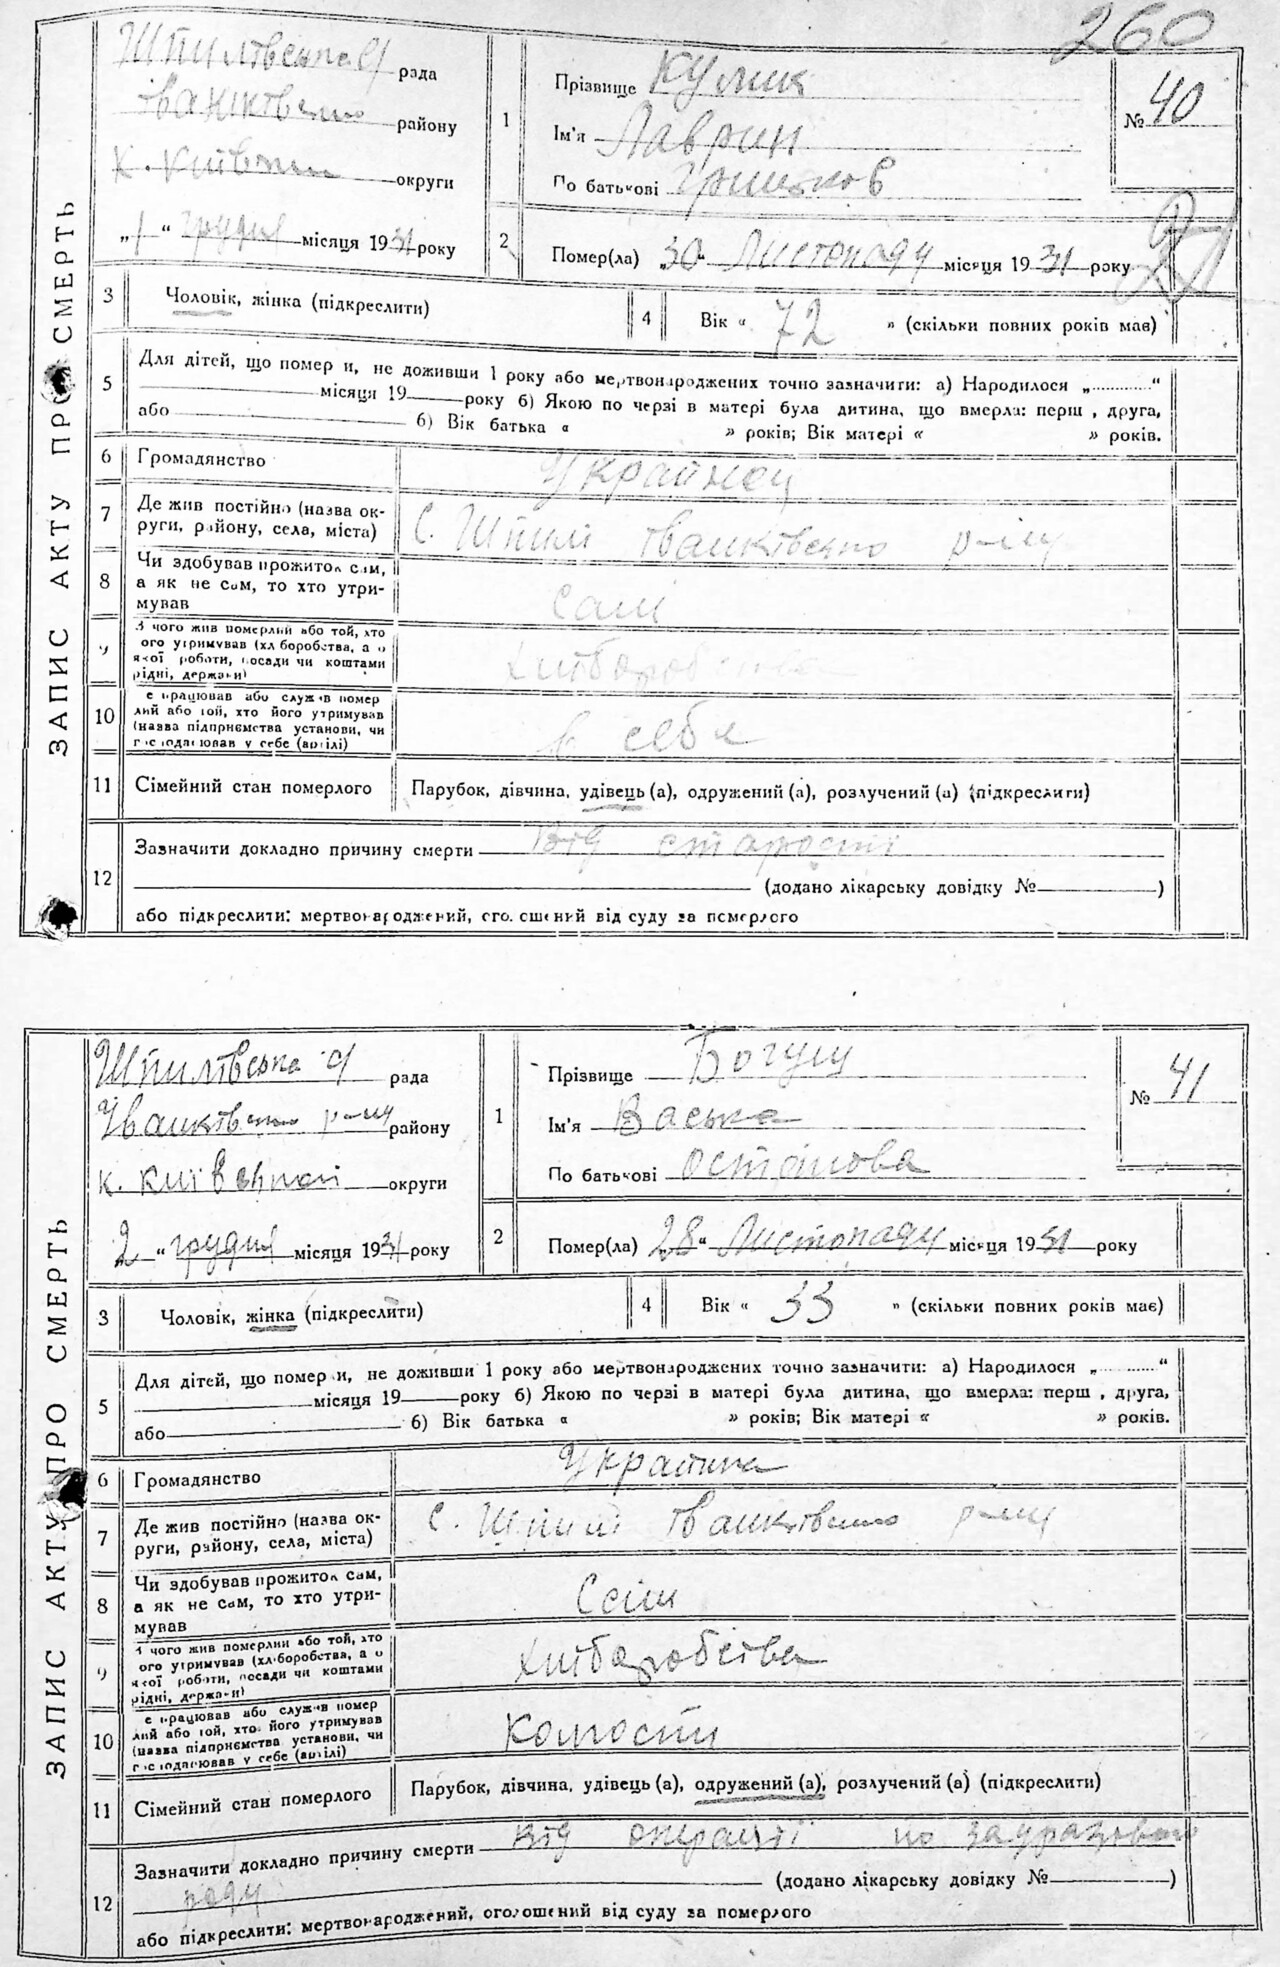 260
ЗАПИС АКТУ ПРО СМЕРТЬ
Шпилівська рада
Іванківсько району
К. Київ округи
„1“ грудня місяця 1931 року
1
Прізвище Кулик
Ім'я Лаврин
По батькові Гришков
№ 40
2
Помер(ла) „30“ Листопаду місяця 1931 року
3 Чоловік, жінка (підкреслити)
4 Вік « 72 » (скільки повних років має)
5 Для дітей, що помер и, не доживши 1 року або мертвонароджених точно зазначити: а) Народилося „............“
місяця 19 року б) Якою по черзі в матері була дитина, що вмерла: перш , друга,
або б) Вік батька « » років; Вік матері « » років.
6 Громадянство Українец
7 Де жив постійно (назва ок-
руги, району, села, міста) С. Шпилі Іванківсько р-ну
8 Чи здобував прожиток сам,
а як не сам, то хто утри-
мував Сам
9 З чого жив померлий або той, хто
ого утримував (хл боробства, а о
якої роботи, посади чи коштами
рідні, держави) хліборобства
10 е працював або служив помер
лий або той, хто його утримував
(назва підприємства установи, чи
господарював у себе (артілі) в себе
11 Сімейний стан померлого Парубок, дівчина, удівець (а), одружений (а), розлучений (а) (підкреслити)
12 Зазначити докладно причину смерти Від старості
(додано лікарську довідку № )
або підкреслити: мертвонароджений, оголошений від суду за померлого
ЗАПИС АКТУ ПРО СМЕРТЬ
Шпилівська рада
Іванківсько р-ну району
К. Київської округи
2 “ грудня місяця 1931 року
1
Прізвище Богуш
Ім'я Васька
По батькові Остапова
№ 41
2
Помер(ла) „28“ Листопаду місяця 1931 року
3 Чоловік, жінка (підкреслити)
4 Вік « 33 » (скільки повних років має)
5 Для дітей, що помер и, не доживши 1 року або мертвонароджених точно зазначити: а) Народилося „............“
місяця 19 року б) Якою по черзі в матері була дитина, що вмерла: перш , друга,
або б) Вік батька « » років; Вік матері « » років.
6 Громадянство Українка
7 Де жив постійно (назва ок-
руги, район, села, міста) С. Шпилі Іванківсько р-ну
8 Чи здобував прожиток сам,
а як не сам, то хто утри-
мував
9 З чого жив померлий або той, хто
ого утримував (хліборобства, а о
якої роботи, посади чи коштами
рідні, держави) хліборобства
10 е працював або служив помер
лий або той, хто його утримував
(назва підприємства установи, чи
господарював у себе (артілі)
11 Сімейний стан померлого Парубок, дівчина, удівець (а), одружений (а), розлучений (а) (підкреслити)
12 Зазначити докладно причину смерти Від операції по
роду (додано лікарську довідку № )
або підкреслити: мертвонароджений, оголошений від суду за померлого